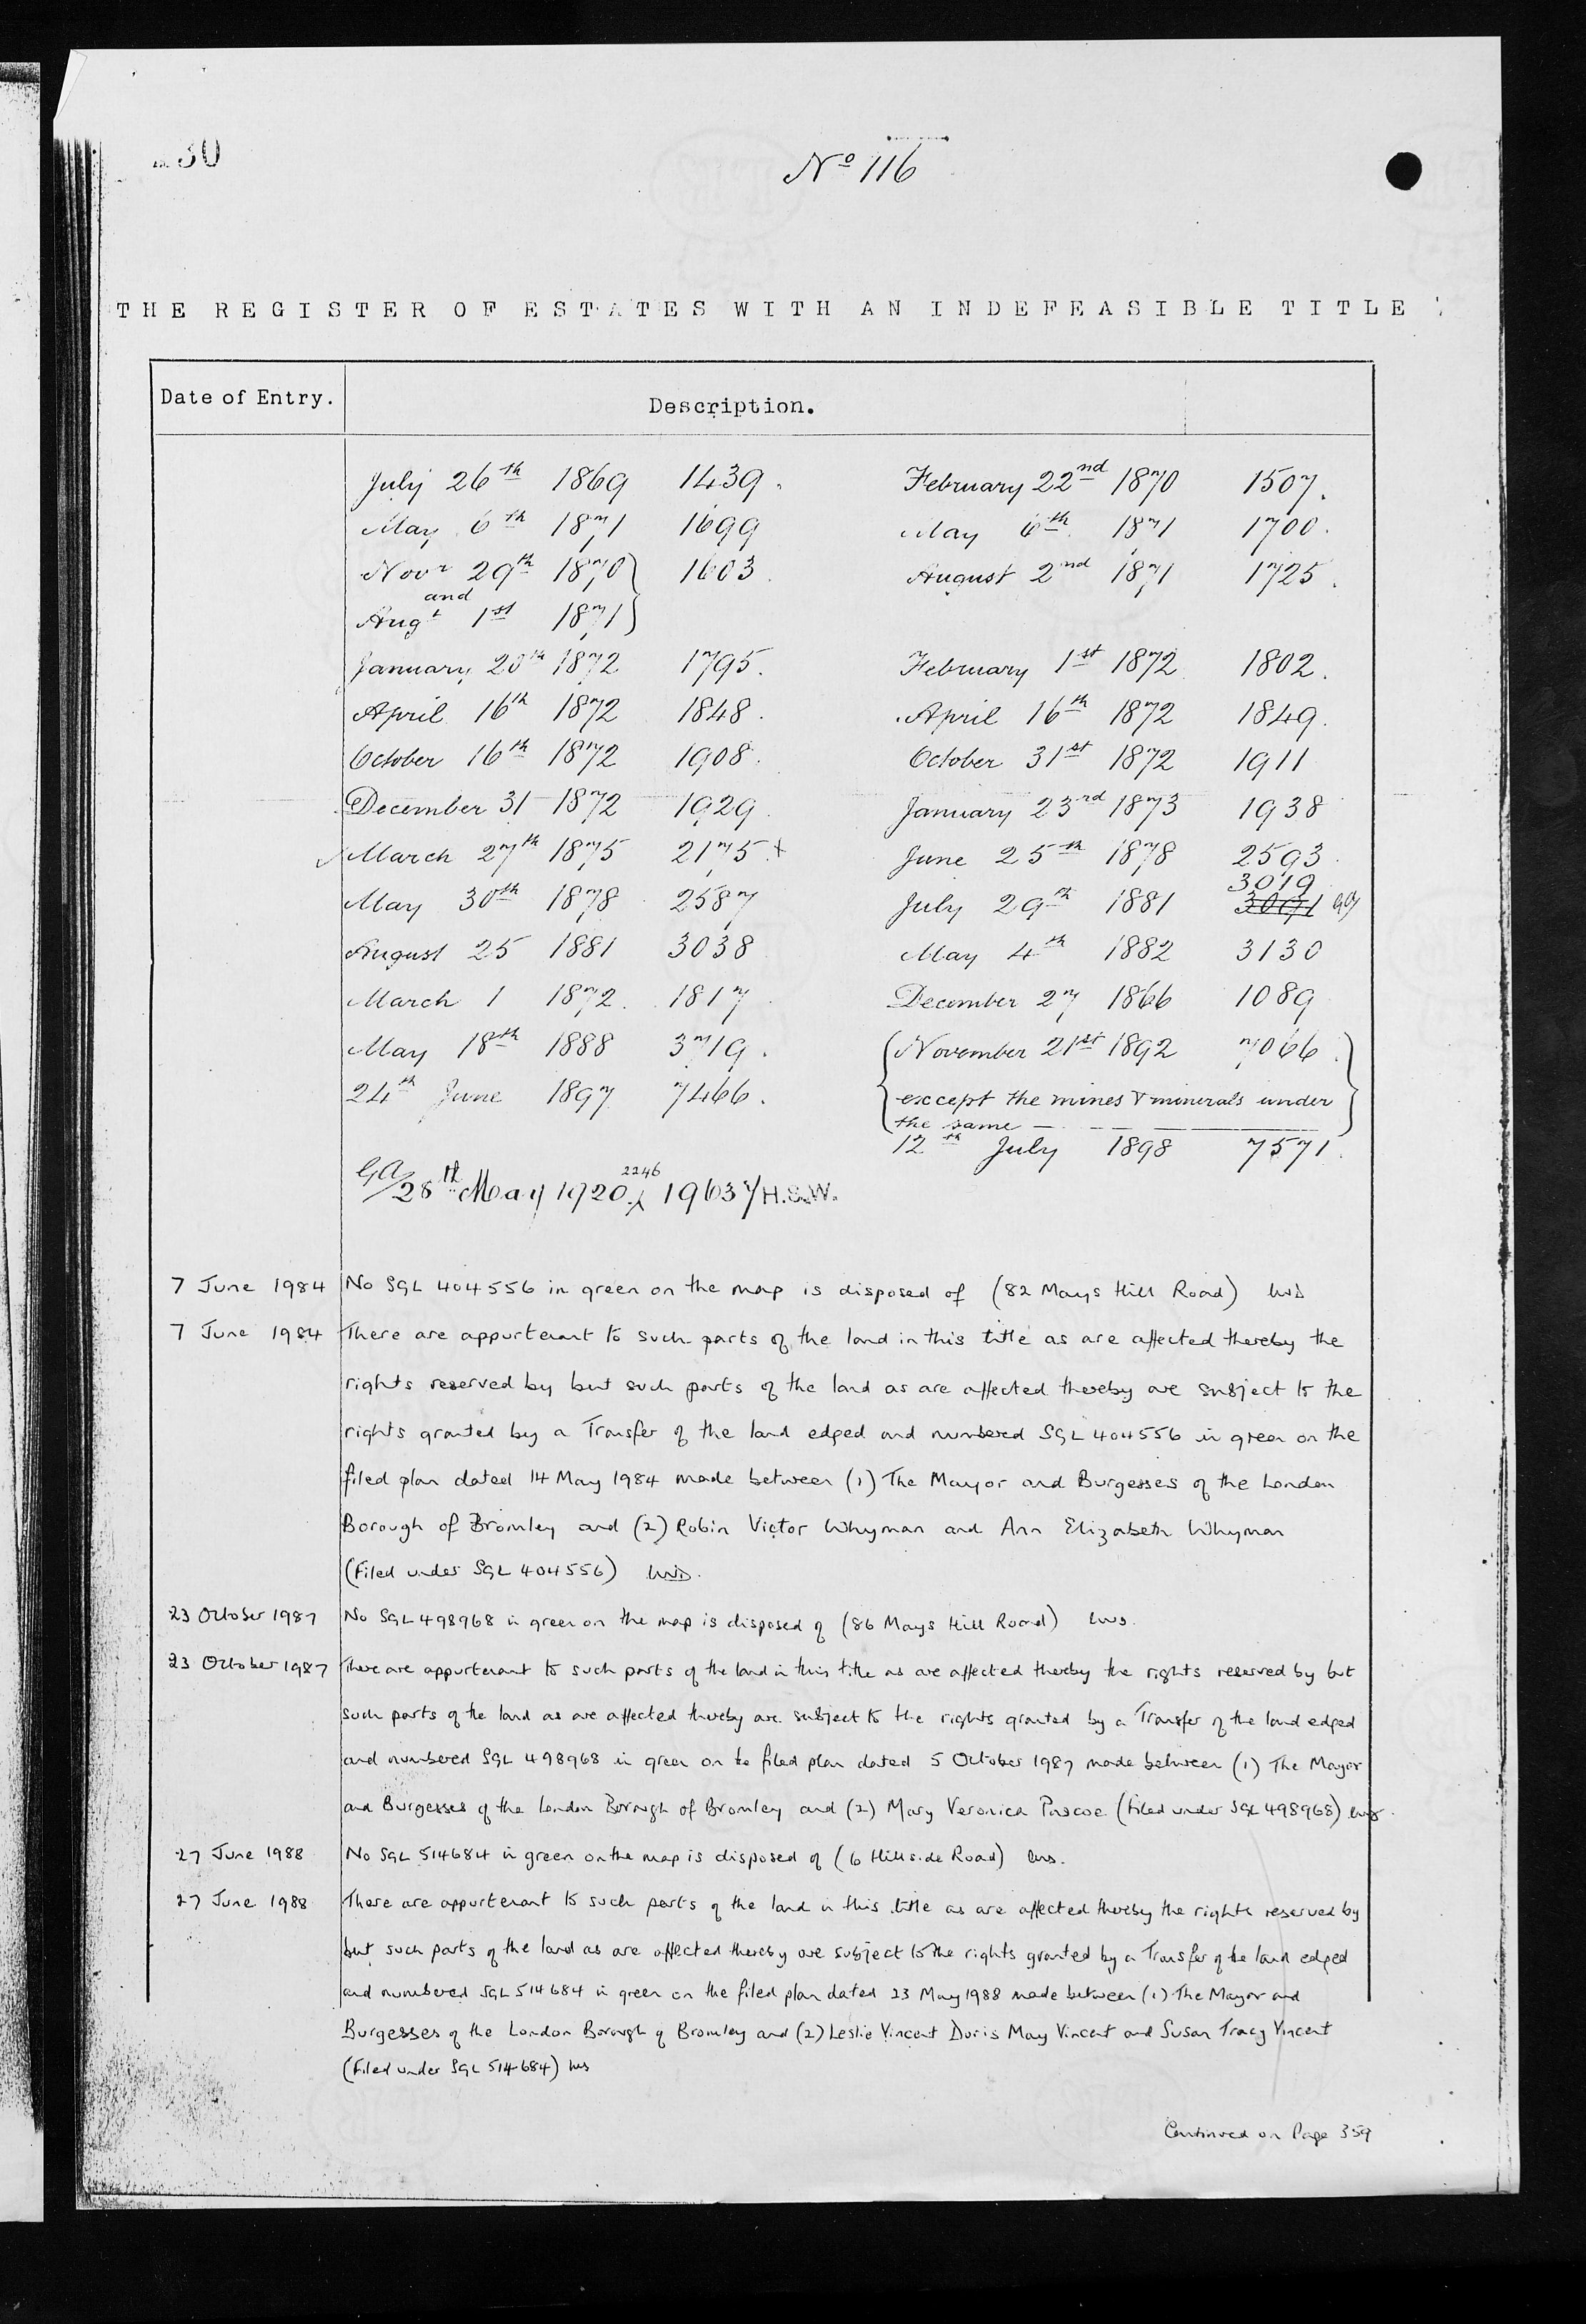 30
Nº 116
THE REGISTER OF ESTATES WITH AN INDEFEASIBLE TITLE
Date of Entry. Description.
July 26th 1869 1439. February 22nd 1870 1507.
May 6th 1871 1699 May 6th 1871 1700.
Novr 29th 1870 } 1603. August 2nd 1871 1725.
and
Augt 1st 1871 }
January 20th 1872 1795. February 1st 1872 1802.
April 16th 1872 1848. April 16th 1872 1849.
October 16th 1872 1908. October 31st 1872 1911
December 31 1872 1929 January 23rd 1873 1938
March 27th 1875 2175.+ June 25th 1878 2593
3019
May 30th 1878 2587 July 29th 1881 3091
August 25 1881 3038 May 4th 1882 3130
March 1 1872. 1817 December 27 1866 1089
May 18th 1888 3719. { November 21st 1892 7066. }
24th June 1897 7466. { except the mines & minerals under }
the same
12th July 1898 7571.
2246
GA/28th May 1920 19637/H.S.W.
7 June 1984 No SGL 404556 in green on the map is disposed of (82 Mays Hill Road)
7 June 1984 There are appurtenant to such parts of the land in this title as are affected thereby the
rights reserved by but such parts of the land as are affected thereby are subject to the
rights granted by a Transfer of the land edged and numbered SGL 404556 in green on the
filed plan dated 14 May 1984 made between (1) The Mayor and Burgesses of the London
Borough of Bromley and (2) Robin Victor Whyman and Ann Elizabeth Whyman
(Filed under SGL 404556)
23 October 1987 No SGL 498968 in green on the map is disposed of (86 Mays Hill Road)
23 October 1987 There are appurtenant to such parts of the land in this title as are affected thereby the rights reserved by but
such parts of the land as are affected thereby are subject to the rights granted by a Transfer of the land edged
and numbered SGL 498968 in green on the filed plan dated 5 October 1987 made between (1) The Mayor
and Burgesses of the London Borough of Bromley and (2) Mary Veronica Pascoe (Filed under SGL 498968)
27 June 1988 No SGL 514684 in green on the map is disposed of (6 Hillside Road)
27 June 1988 There are appurtenant to such parts of the land in this title as are affected thereby the rights reserved by
but such parts of the land as are affected thereby are subject to the rights granted by a Transfer of the land edged
and numbered SGL 514684 in green on the filed plan dated 23 May 1988 made between (1) The Mayor and
Burgesses of the London Borough of Bromley and (2) Leslie Vincent Doris May Vincent and Susan Tracy Vincent
(Filed under SGL 514684)
Continued on Page 359